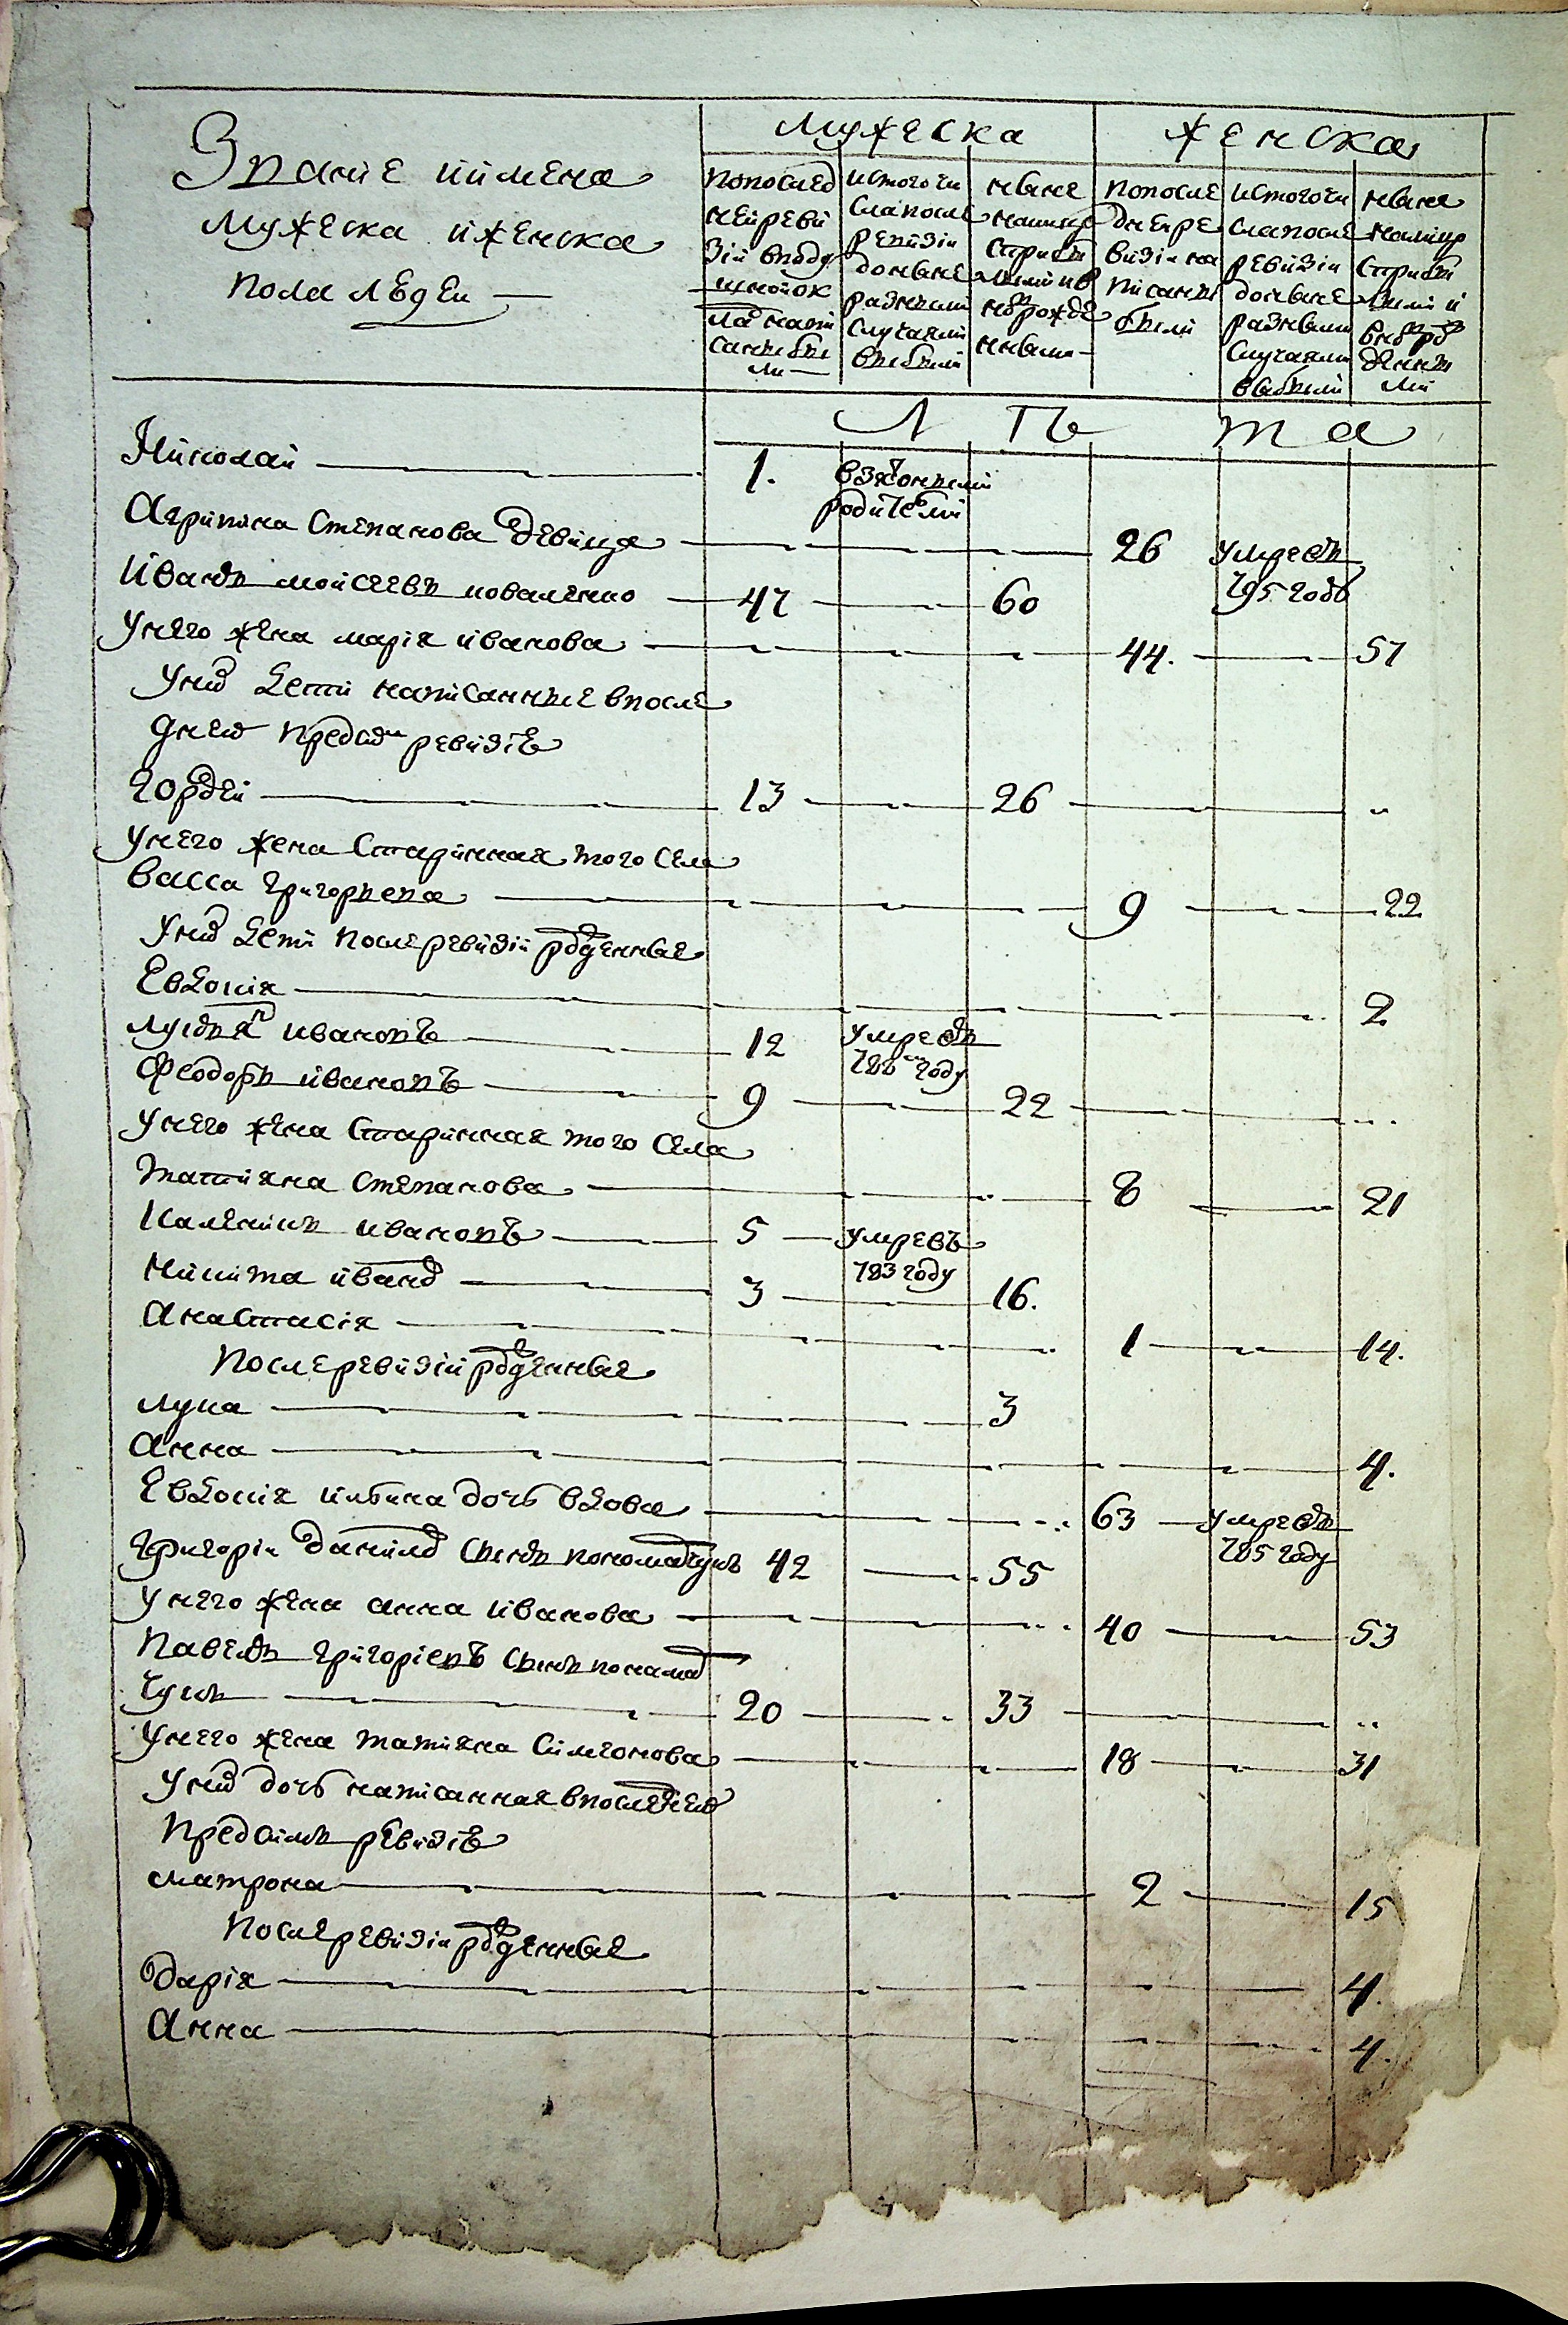 Званіе иимена
Мужеска иженска
пола лѣдеи
Мужеска
Женска
попослед
неиреви
зіи вподу
шноиок
лад напи
санны бы
ли
истогочи
слапосле
ревизіи
доныне
разными
случаями
выбыли
ныне
налице
спри бы
лыми ив
новрожде
нными
попосле
днеире
визіи на
писаны
были
истогочи
слапосле
ревизіи
доныне
разными
случаями
выбыли
ныне
налицо
сприбы
лыми и
вновро
жденны
ми
Л Ѣ т а
Николаи 1. взятоныи
родителми
Агрипина Степанова девица 26 умре въ
795 году
Иванъ моисеевъ коваленко 47 60
Унего жена марія иванова 44. 57
Унихъ дети написанные впосле
днеи пред симъ ревизіи
Гордеи 13 26
Унего жена Старинная того Села
васса григорьева 9 22
Унихъ дети После ревизіи рожденные
Евдокія 2
Лукьянъ ивановъ 12 умре въ
788м году
Феодоръ ивановъ 9 22
Унего жена Старинная того Села
Татияна Степанова 8 21
Каленикъ ивановъ 5 умре въ
783 году
Никита ивановъ 3 16.
Анастасія 1 14.
После ревизіи рожденные
Лука 3
Анна 4.
Евдокія ильина дочь вдова 63 умре въ
785 году
Григоріи даниловъ Сынъ пономарчукъ 42 55
Унего жена анна иванова 40 53
Павелъ григоріевъ Сынъ понамар
чукъ 20 33
Унего жена татияна Симеонова 18 31
Унихъ дочь написанная впоследнеи
пред симъ ревизіи
матрона 2 15
После ревизіи рожденные
Дарія 4.
Анна 4.